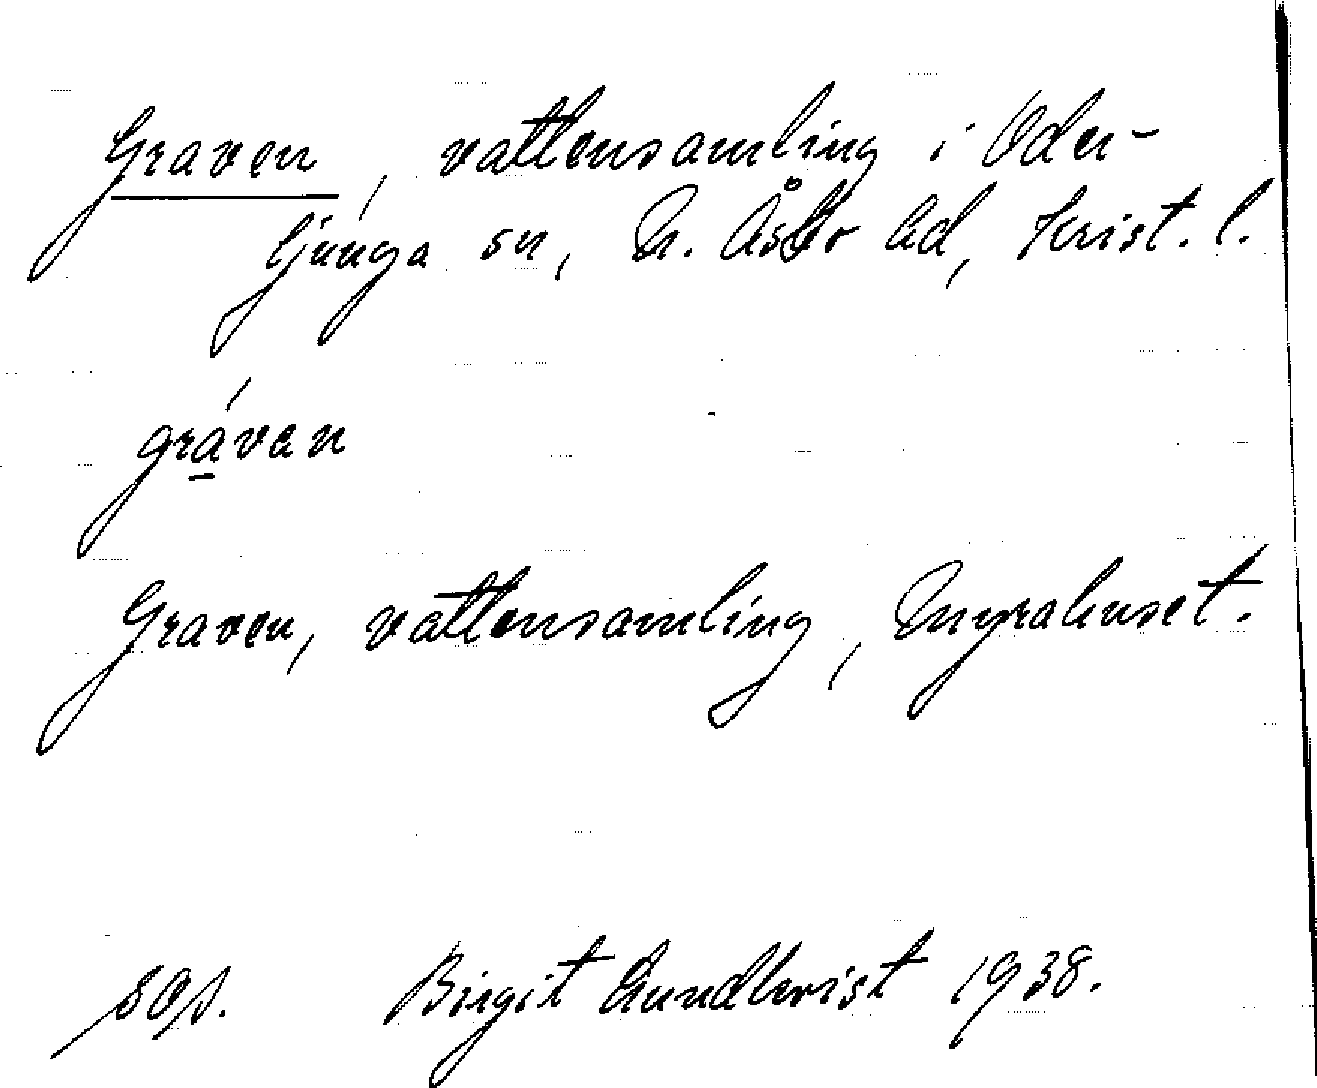 Graven, vattensamling i Oder-
ljunga sn, N. Åsbo hd, Krist. l.
grá̱van
Graven, vattensamling, Myrahuset.
sas. Birgit Lundkvist 1938.